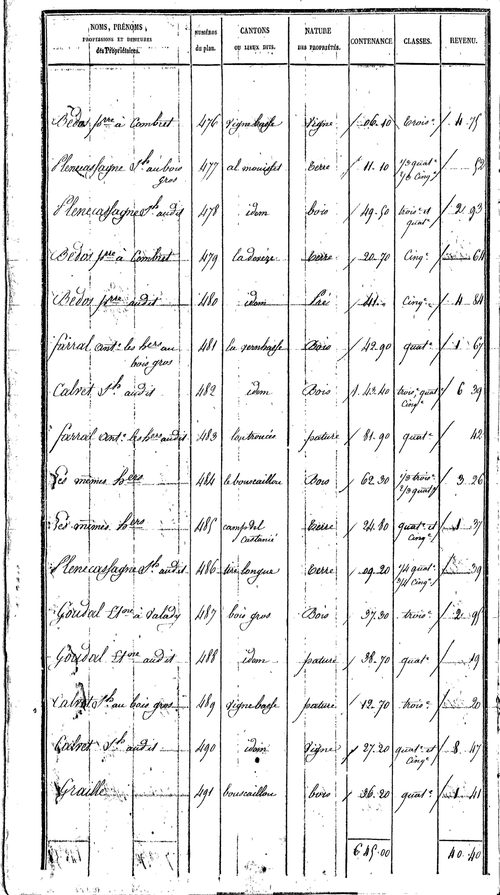 NOMS, PRÉNOMS, PROFESSIONS ET DEMEURES des Propriétaires. | NUMÉROS du plan. | CANTONS OU LIEUX DITS. | NATURE DES PROPRIÉTÉS. | CONTENANCE | CLASSES. | REVENU.
Bédos pre à Combret 476 vigne basse Vigne 06.10 trois.e 4 75
Plenecassagne Jh au bois gros 477 al mouisset terre 11.10 1/3 quat.e 2/3 cinq.e 52
Plenecassagne Jh audit 478 idem bois 49.50 trois.e et quat.e 2 93
Bédos pre à Combret 479 terre 20.70 Cinq.e 64
Bédos pre audit 480 idem Pré 41. Cinq.e 4 84
farral ant.e les hers au bois gros 481 Bois 42.90 quat.e 1 67
Calvet Jh audit 482 idem Bois 1.43.40 trois.e quat.e Cinq.e 6 39
farral ant.e les hers audit 483 pature 81.90 quat.e 42
Les mêmes hers 484 le bouscaillou Bois 62.30 1/3 trois.e 2/3 quat.e 3 26
Les mêmes hers 485 camp del Castanié terre 24.80 quat.e et cinq.e 1 37
Plenecassagne Jh audit 486 tire longue terre 09.20 1/4 quat.e 3/4 cinq.e 39
Goudal Etne à Valady 487 bois gros Bois 37.30 trois.e 2 95
Goudal Etne audit 488 idem pature 38.70 quat.e 19
Calvet Jh au bois gros 489 vigne basse pature 12.70 trois.e 20
Calvet Jh audit 490 idem Vigne 27.20 quat.e et Cinq.e 8 47
Graille 491 bouscaillou bois 36.20 quat.e 1 41
645.00 40.40